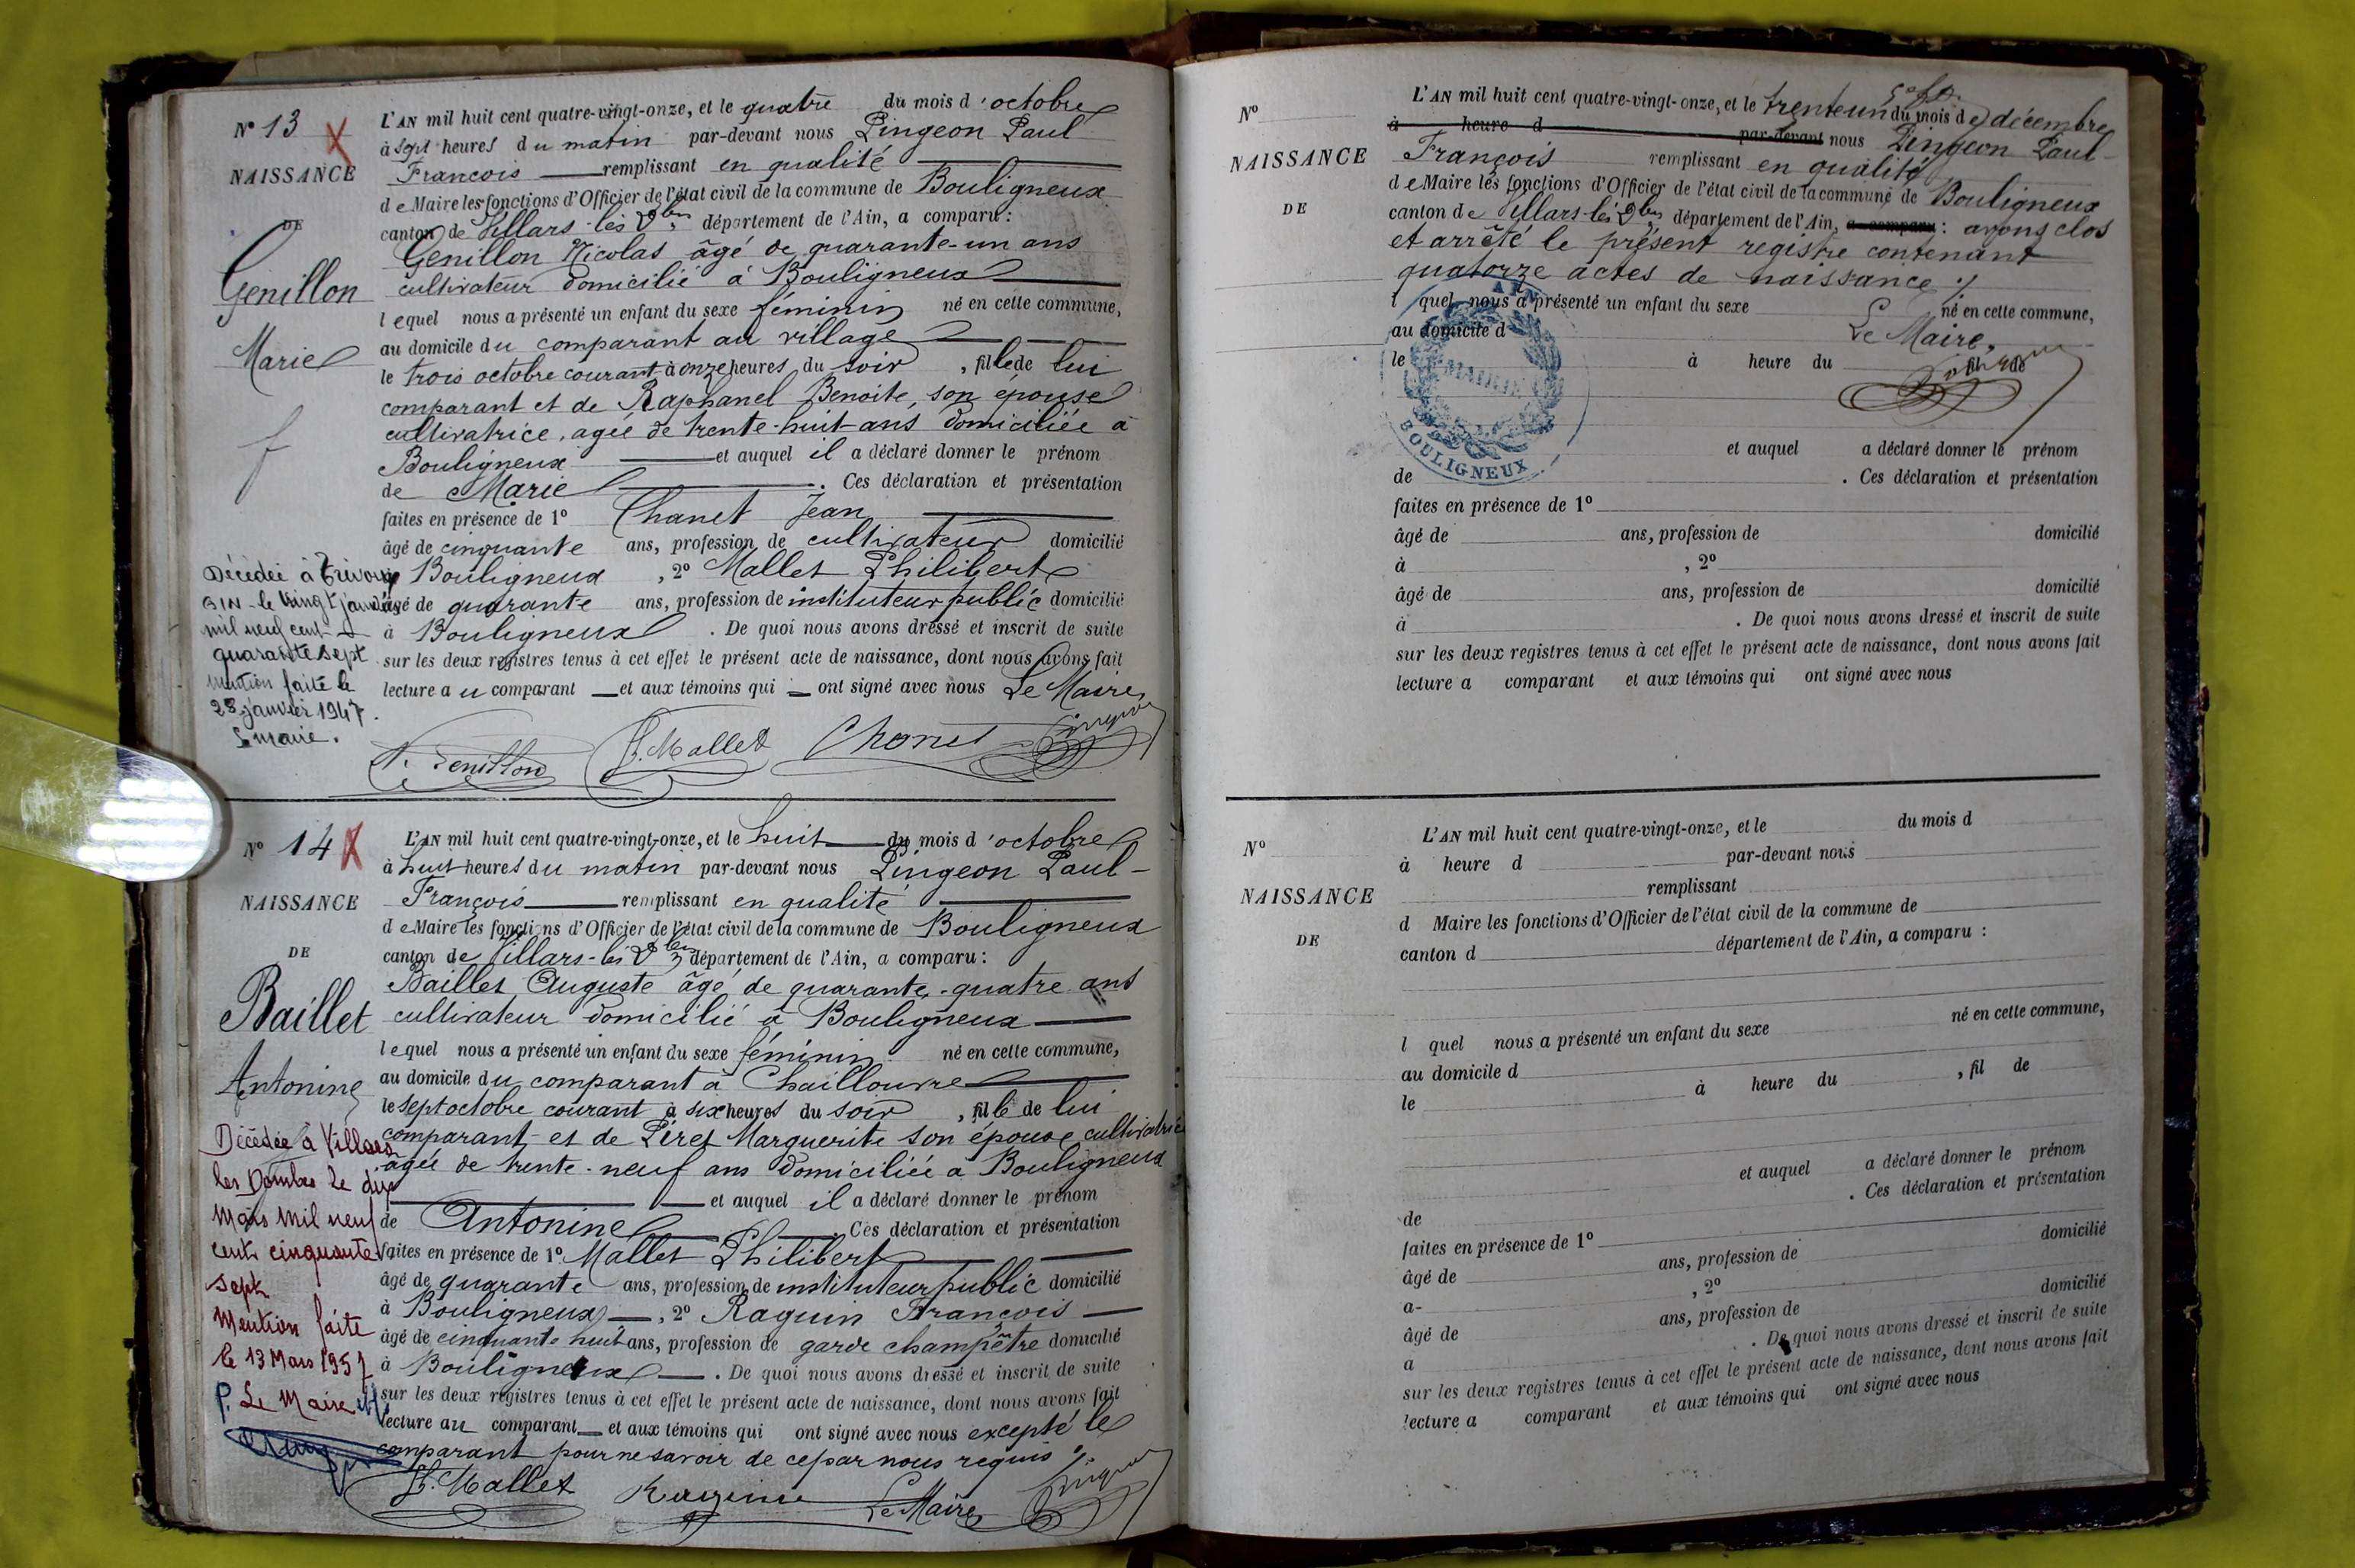 N° 13
NAISSANCE
DE
Genillon
Marie
f
L'AN mil huit cent quatre-vingt-onze, et le quatre du mois d'octobre
à sept heures du matin par-devant nous Pingeon Paul
François remplissant en qualité
de Maire les fonctions d'Officier de l'état civil de la commune de Bouligneux
canton de Villars-les-Dbes, département de l'Ain, a comparu :
Genillon Nicolas âgé de quarante-un ans
cultivateur domicilié à Bouligneux
lequel nous a présenté un enfant du sexe féminin né en cette commune,
au domicile du comparant au village
le trois octobre courant à onze heures du soir, fille de lui
comparant et de Raphanel Benoite, son épouse
cultivatrice, agée de trente-huit ans domiciliée à
Bouligneux et auquel il a déclaré donner le prénom
de Marie. Ces déclaration et présentation
faites en présence de 1° Chanet Jean
âgé de cinquante ans, profession de cultivateur domicilié
à Bouligneux, 2° Mallet Philibert
âgé de quarante ans, profession de instituteur public domicilié
à Bouligneux. De quoi nous avons dressé et inscrit de suite
sur les deux registres tenus à cet effet le présent acte de naissance, dont nous avons fait
lecture au comparant et aux témoins qui ont signé avec nous Le Maire
Décédée à Trévoux
AIN - le vingt janvier
mil neuf cent
quarante sept
Mention faite le
28 janvier 1947.
Le maire.
N. Genillon P. Mallet Chanet Pingeon
N° 14
NAISSANCE
DE
Baillet
Antonine
L'AN mil huit cent quatre-vingt-onze, et le huit du mois d'octobre
à huit heures du matin par-devant nous Pingeon Paul-
François remplissant en qualité
de Maire les fonctions d'Officier de l'état civil de la commune de Bouligneux
canton de Villars-les-Dbes, département de l'Ain, a comparu :
Baillet Auguste âgé de quarante-quatre ans
cultivateur domicilié à Bouligneux
lequel nous a présenté un enfant du sexe féminin né en cette commune,
au domicile du comparant à Chaillouvre
le sept octobre courant à six heures du soir, fille de lui
comparant et de Péret Marguerite son épouse cultivatrice
âgée de trente-neuf ans domiciliée à Bouligneux
et auquel il a déclaré donner le prénom
de Antonine. Ces déclaration et présentation
faites en présence de 1° Mallet Philibert
âgé de quarante ans, profession de instituteur public domicilié
à Bouligneux, 2° Raguin François
âgé de cinquante huit ans, profession de garde champêtre domicilié
à Bouligneux. De quoi nous avons dressé et inscrit de suite
sur les deux registres tenus à cet effet le présent acte de naissance, dont nous avons fait
lecture au comparant et aux témoins qui ont signé avec nous excepté le
comparant pour ne savoir de ce par nous requis ./
Décédée à Villars
les Dombes le dix
Mars mil neuf
cent cinquante
sept
Mention faite
le 13 Mars 1957
P. Le Maire
P. Mallet Raguin Le Maire Pingeon
N°
NAISSANCE
DE
L'AN mil huit cent quatre-vingt-onze, et le trente un du mois de décembre
à heure d par-devant nous Pingeon Paul-
François remplissant en qualité
de Maire les fonctions d'Officier de l'état civil de la commune de Bouligneux
canton de Villars-les-Dbes, département de l'Ain, a comparu : avons clos
et arrêté le présent registre contenant
quatorze actes de naissance ./
l quel nous a présenté un enfant du sexe né en cette commune,
au domicile d Le Maire,
le à heure du , fil de
Pingeon
MAIRIE
AIN
BOULIGNEUX
et auquel a déclaré donner le prénom
de . Ces déclaration et présentation
faites en présence de 1°
âgé de ans, profession de domicilié
à , 2°
âgé de ans, profession de domicilié
à . De quoi nous avons dressé et inscrit de suite
sur les deux registres tenus à cet effet le présent acte de naissance, dont nous avons fait
lecture a comparant et aux témoins qui ont signé avec nous
N°
NAISSANCE
DE
L'AN mil huit cent quatre-vingt-onze, et le du mois d
à heure d par-devant nous
remplissant
d Maire les fonctions d'Officier de l'état civil de la commune de
canton d département de l'Ain, a comparu :
l quel nous a présenté un enfant du sexe né en cette commune,
au domicile d
le à heure du , fil de
et auquel a déclaré donner le prénom
de . Ces déclaration et présentation
faites en présence de 1°
âgé de ans, profession de domicilié
a- , 2°
âgé de ans, profession de domicilié
a . De quoi nous avons dressé et inscrit de suite
sur les deux registres tenus à cet effet le présent acte de naissance, dont nous avons fait
lecture a comparant et aux témoins qui ont signé avec nous